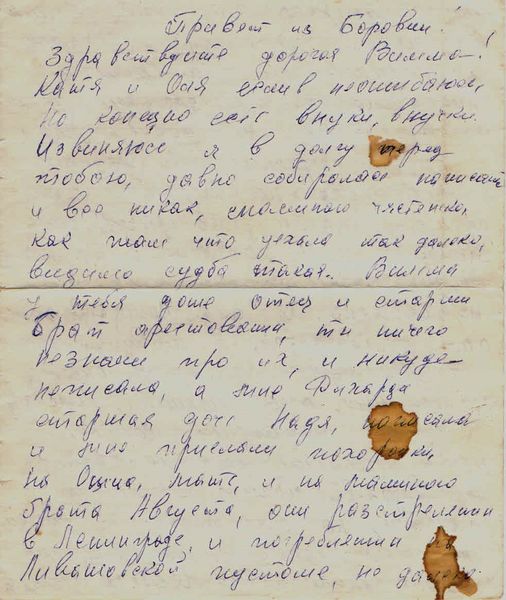 Привет из Боровии!
Здравствуйте дорогая Вилма!
Катя и Оля если в неошибаюсь,
Но конешно есть внуки, внучки.
Извиняюсь я в долгу перед
тобою, давно собиралась написать
и воо никак, спаминаю частенько,
как там что уехала так далеко,
видимо судба такая. Вилма
у тебя доже отец и старши
брат арестованы, ти ничего
незнаеш про их, и никуда
неписала, а мне Рихарда
старшая доч Надя, написала
и мне прислали похоронки
на Отца, мать, и на маминого
брата Августа, они разстреляни
в Ленинграде, и погребляни на
Ливашовской пустоше, но далеко